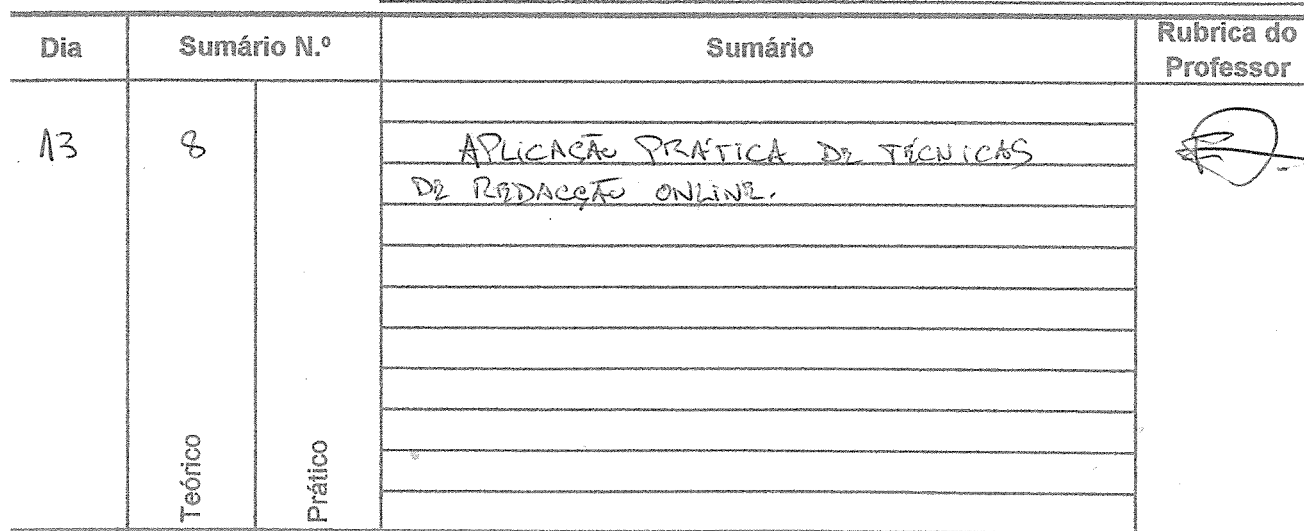 Dia Sumário N.º Sumário Rubrica do
Professor
13 8 APLICAÇÃO PRÁTICA DE TÉCNICAS
DE REDACÇÃO ONLINE.
Teórico Prático